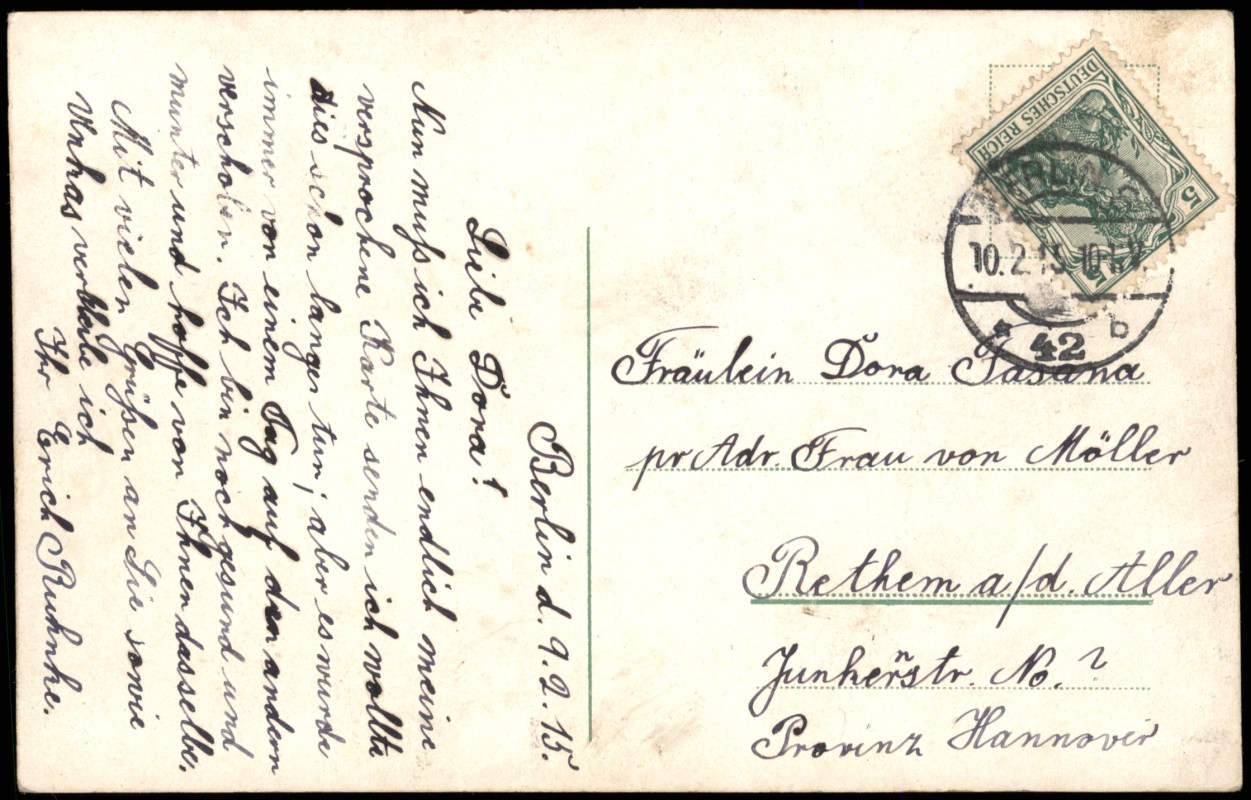 Berlin d. 9.2.15.
Liebe Dora!
Nun muß ich Ihnen endlich meine
versprochene Karte senden ich wollte
dies schon länger tun; aber es wurde
immer von einem Tag auf den andern
verschoben. Ich bin noch gesund und
munter und hoffe von Ihnen dasselbe.
Mit vielen Grüßen an Sie sowie
verbleibe ich
Ihr Erich Ruhnke.
DEUTSCHES REICH
5
BERLIN
10.2.15. 10-11V.
* 42 b
Fräulein Dora
pr Adr. Frau von Möller
Rethem a/d. Aller
Junkernstr. No. ?
Provinz Hannover